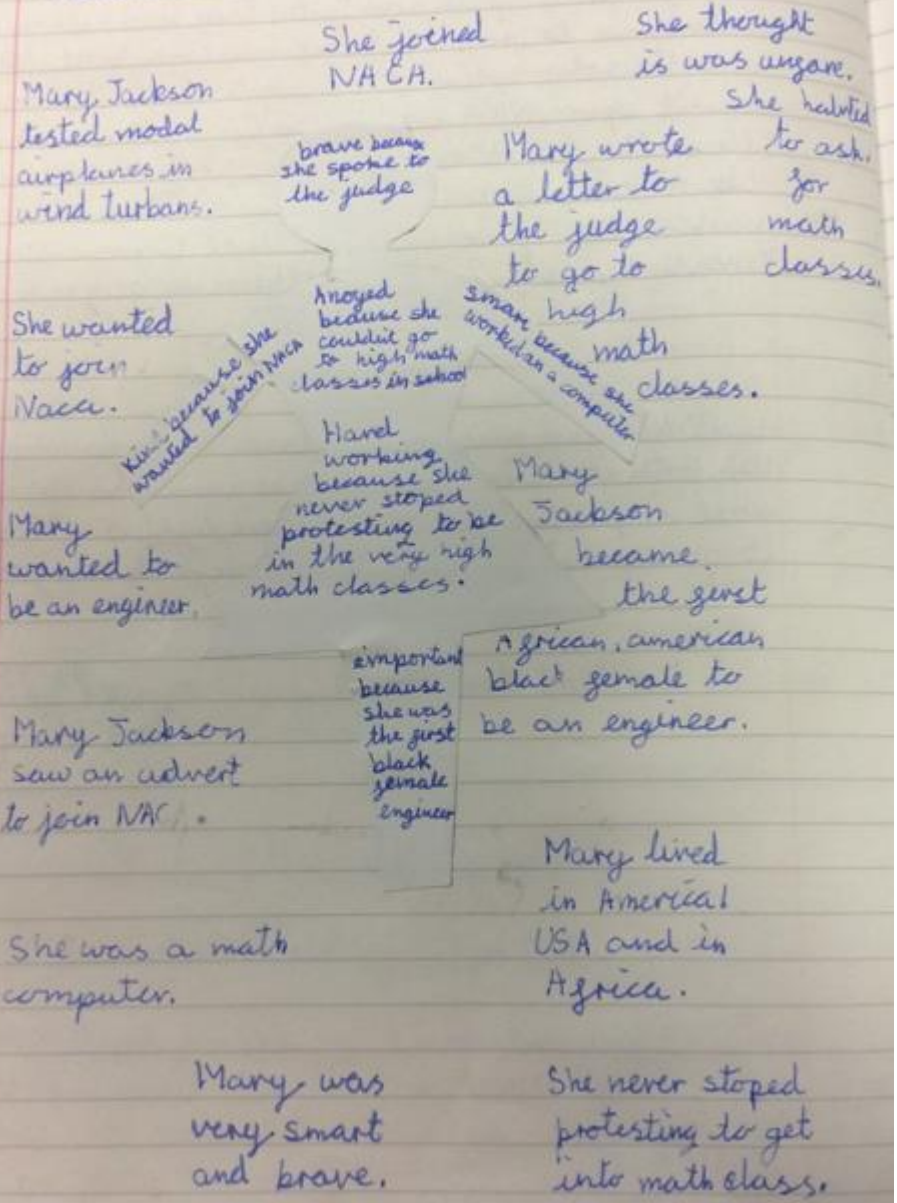 She joined
NACA.
She thought
is was ungare.
She habted
to ask.
for
math
classes.
Mary Jackson
tested modal
airplanes in
wind turbans.
brave because
she spoke to
the judge
Mary wrote
a letter to
the judge
to go to
high
math
classes.
She wanted
to join
Naca.
Kind because she
wanted to join NACA
Anoyed
because she
couldn't go
to high math
classes in school
smart because she
worked an a computer
Hard
working
because she
never stoped
protesting to be
in the very high
math classes.
Mary
wanted to
be an engineer.
Mary
Jackson
became
the first
African, american
black female to
be an engineer.
important
because
she was
the first
black
female
engineer
Mary Jackson
saw an advert
to join NAC.
Mary lived
in America/
USA and in
Africa.
She was a math
computer.
Mary was
very smart
and brave.
She never stoped
protesting to get
into math class.